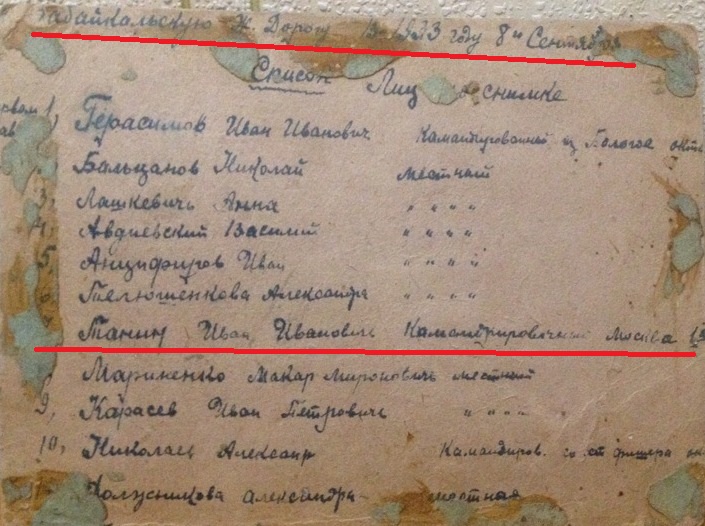 Забайкальскую Ж. Дорогу в 1923 году 8го Сентября
Список Лиц на снимке
1, Герасимов Иван Иванович Командированный из Бологое окт
Бальцанов Николай местный
3, Лашкевичь Анна " " " "
4, Авдиевский Василий " " " "
5, Анцифиров Иван " " " "
6, Телюшенкова Александра " " " "
Танин Иван Ивановичь Москва
Мариненко Макар Мироновичь местный
9, Карасев Иван Петровичь " " " "
10, Николаев Александр Командиров. со ст
Александра местная